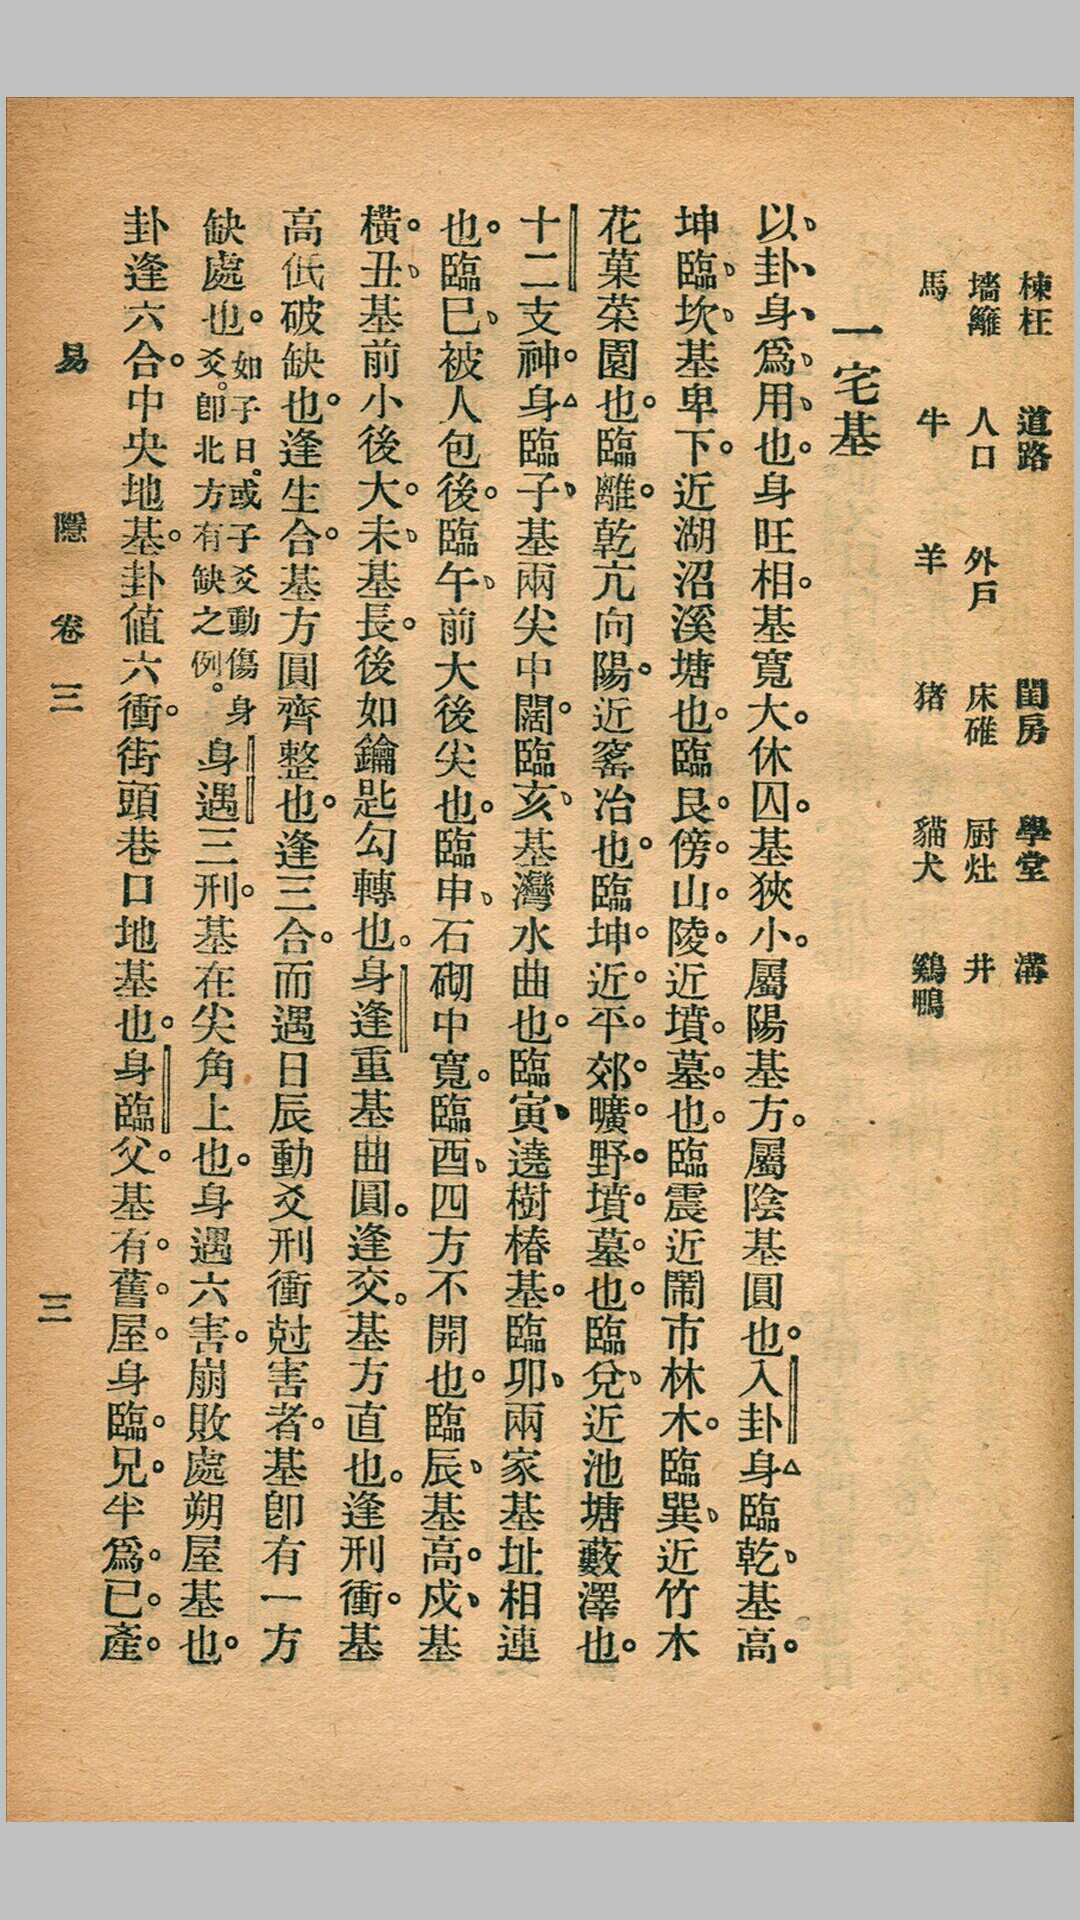 棟枉　道路　閨房　學堂　溝
墻籬　人口　外戶　床碓　厨灶　井
馬　牛　羊　猪　貓犬　鷄鴨
一宅基
以卦身爲用也。身旺相。基寬大。休囚。基狹小。屬陽基方。屬陰基圓也。入卦身臨乾、基高。
坤臨、坎、基卑下。近湖沼溪塘也。臨艮。傍山。陵。近墳。墓。也。臨震近鬧市林木。臨巽、近竹木
花菓菜園也。臨離。乾亢向陽。近窰冶也。臨坤。近。平。郊。曠。野。墳。墓。也。臨兌、近池塘藪澤也。
十二支神。身臨子、基兩尖中闊。臨亥、基灣水曲也。臨寅、遶樹椿基。臨卯、兩家基址相連
也。臨巳、被人包後。臨午、前大後尖也。臨申、石砌中寬。臨酉、四方不開也。臨辰、基高。戍、基
橫。丑、基前小後大。未、基長。後如鑰匙勾轉也。身逢重基曲圓。逢交。基方直也。逢刑衝。基
高低破缺也。逢生合。基方圓齊整也。逢三合。而遇日辰動爻刑衝尅害者。基卽有一方
缺處也。如子日。或子爻動傷身爻。卽北方有缺之例。身遇三刑。基在尖角上也。身遇六害。崩敗處朔屋基也。
卦逢六合。中央地基。卦値六衝。街頭巷口地基也。身臨父。基有。舊。屋。身臨。兄。半爲。已。產。
易　隱　卷三　三